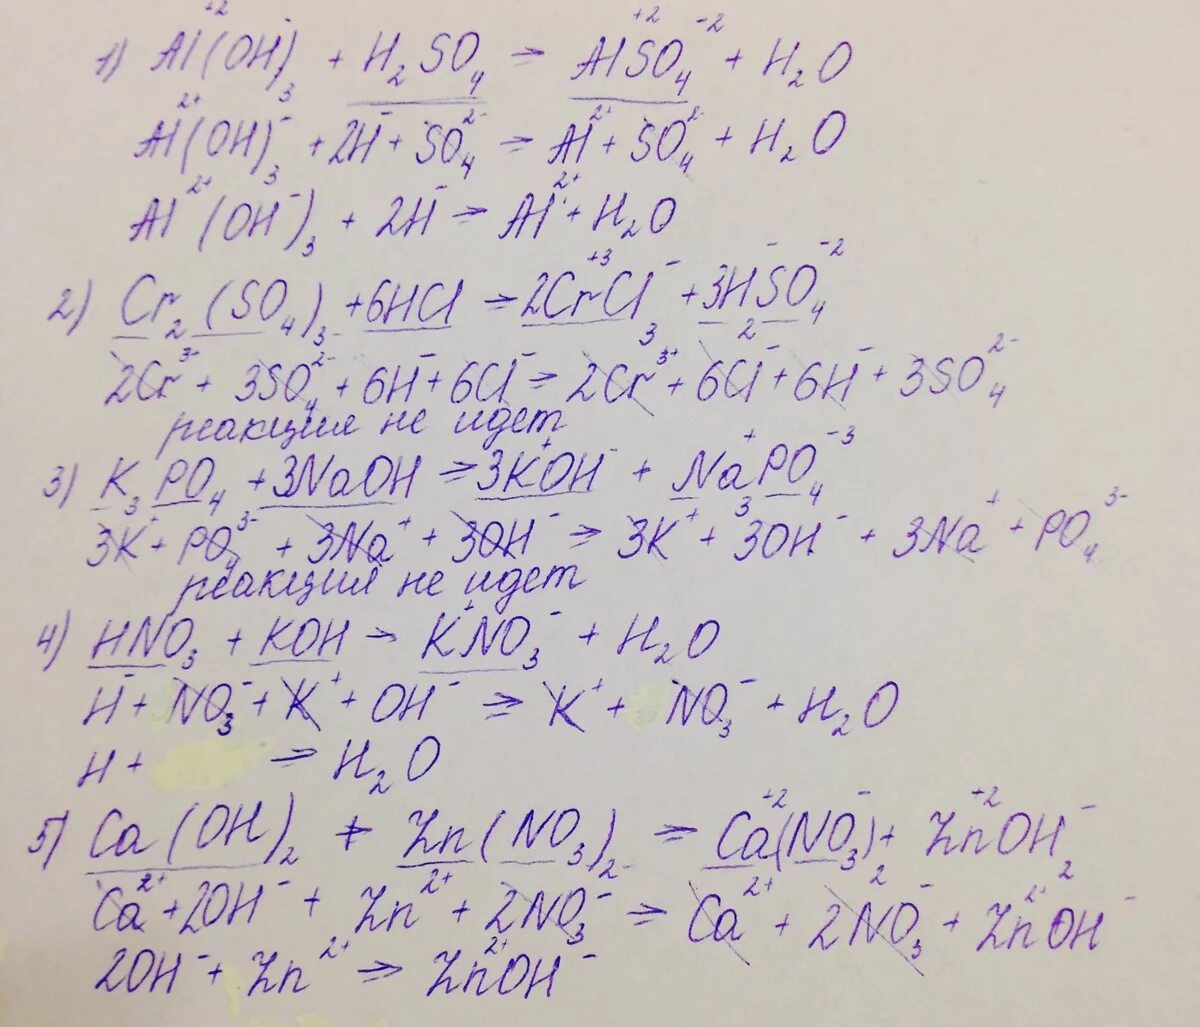 1) Al⁺²(OH)₃⁻ + H₂SO₄ ⇒ Al⁺²SO₄⁻² + H₂O
Al²⁺(OH)₃⁻ + 2H⁻ + SO₄²⁻ ⇒ Al²⁺ + SO₄²⁻ + H₂O
Al²⁺(OH⁻)₃ + 2H⁻ ⇒ Al²⁺ + H₂O
2) Cr₂(SO₄)₃ + 6HCl ⇒ 2Cr⁺³Cl₃⁻ + 3H₂⁻SO₄⁻²
2Cr³⁻ + 3SO₄²⁻ + 6H⁻ + 6Cl⁻ = 2Cr³⁺ + 6Cl⁻ + 6H⁻ + 3SO₄²⁻
реакция не идет
3) K₃PO₄ + 3NaOH ⇒ 3K⁺OH⁻ + Na₃⁺PO₄⁻³
3K⁺ + PO₄³⁻ + 3Na⁺ + 3OH⁻ ⇒ 3K⁺ + 3OH⁻ + 3Na⁺ + PO₄³⁻
реакция не идет
4) HNO₃ + KOH → K⁺NO₃⁻ + H₂O
H⁻ + NO₃⁻ + K⁺ + OH⁻ ⇒ K⁺ + NO₃⁻ + H₂O
H + ⇒ H₂O
5) Ca(OH)₂ + Zn(NO₃)₂ ⇒ Ca⁺²(NO₃)₂⁻ + Zn⁺²OH₂⁻
Ca²⁺ + 2OH⁻ + Zn²⁺ + 2NO₃⁻ ⇒ Ca²⁺ + 2NO₃⁻ + Zn²⁺OH⁻
2OH⁻ + Zn²⁺ ⇒ Zn²⁺OH⁻